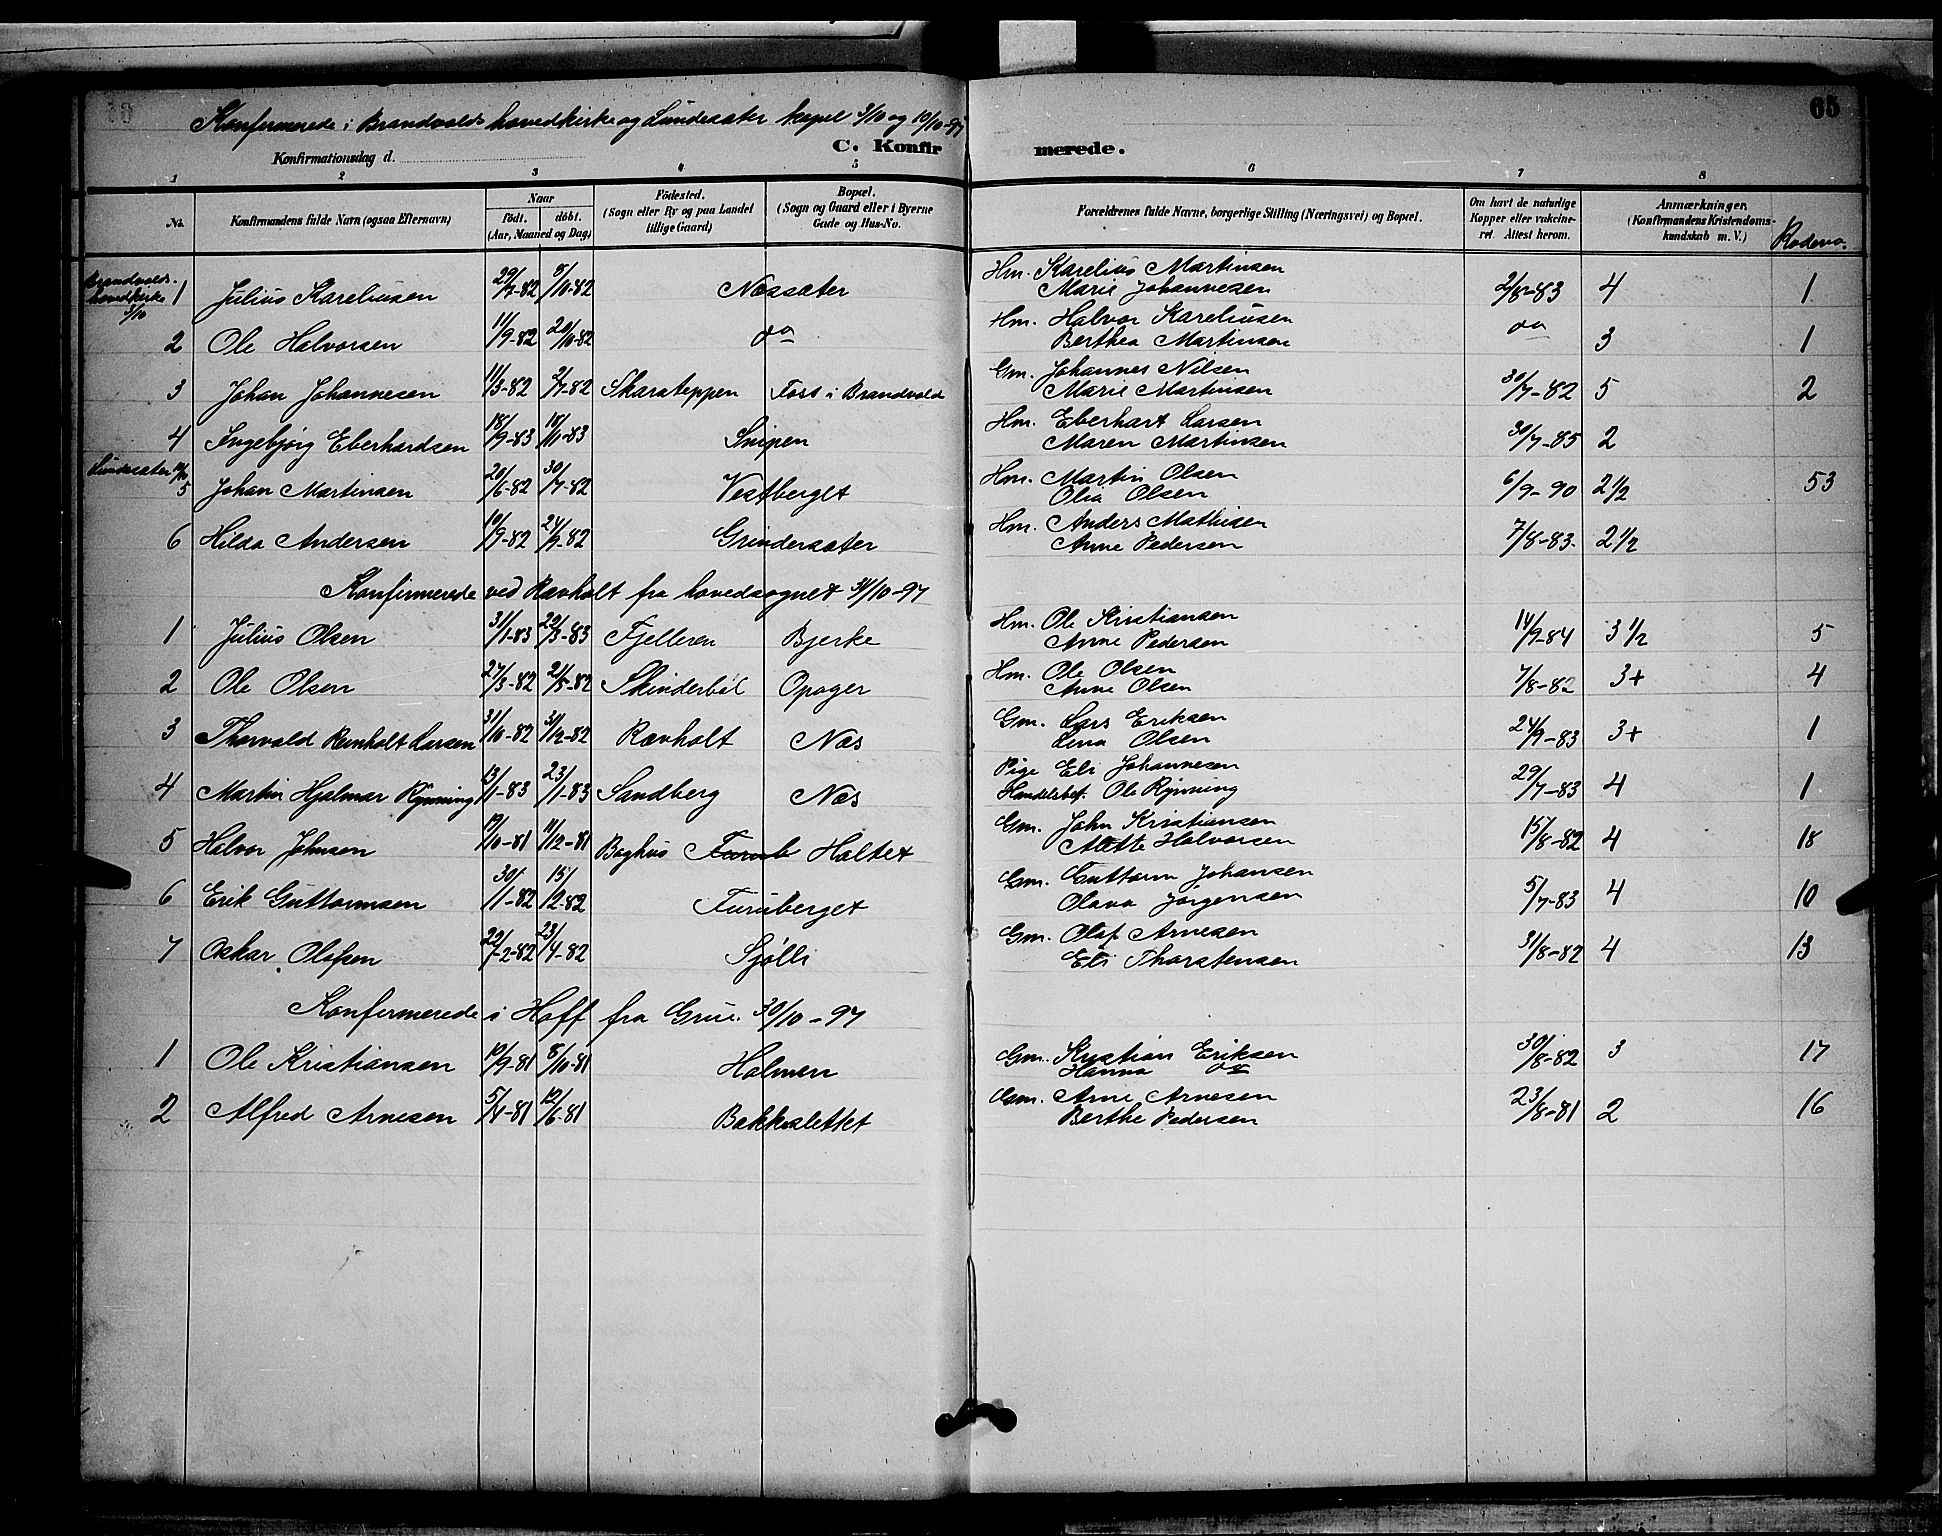 65
Konfirmerede i Brandvolds hovedkirke og Lundesæter kapel 3/10 og 10/10-97
C. Konfirmerede.
Konfirmationsdag d.
1 2 3 4 5 6 7 8
No. Konfirmandens fulde Navn (ogsaa Efternavn) Naar födt. döbt. (Aar, Maaned og Dag) Födested. (Sogn eller By og paa Landet tillige Gaard) Bopæl. (Sogn og Gaard eller i Byerne Gade og Hus-No. Forældrenes fulde Navne, borgerlige Stilling (Næringsvei) og Bopæl. Om havt de naturlige Kopper eller vakcineret. Attest herom. Anmærkninger. (Konfirmandens Kristendomskundskab m. V.) Rodeno.
Brandvolds hovedkirke 3/10
1 Julius Kareliusen 29/7-82 8/10-82 Næssæter Hm. Karelius Martinsen 2/8-83 4 1
Marie Johannesen
2 Ole Halvorsen 11/9-82 20/10-82 do Hm. Halvor Kareliusen do 3 1
Berthea Martinsen
3 Johan Johannesen 11/3-82 2/7-82 Skarateppen Foss i Brandvold Gm. Johannes Nilsen 30/7-82 5 2
Marie Martinsen
4 Ingebjørg Eberhardsen 18/9-83 18/11-83 Snipen Hm. Eberhart Larsen 30/7-85 2
Maren Martinsen
Lundesæter 10/10
5 Johan Martinsen 20/6-82 30/7-82 Vestberget Hm. Martin Olsen 6/9-90 2 1/2 53
Olia Olsen
6 Hilda Andersen 10/9-82 24/9-82 Grindersæter Hm. Anders Mathisen 7/8-83. 2 1/2
Anne Pedersen
Konfirmerede ved Ravholt fra hovedsognet 31/10-97
1 Julius Olsen 31/1-83 29/3-83 Fjelleren Bjerke Hm. Ole Kristiansen 14/9-84 3 1/2 5
Anne Pedersen
2 Ole Olsen 27/3-82 21/5-82 Skinderböl Opager Hm. Ole Olsen 7/8-82 3+ 4
Anne Olsen
3 Thorvald Reinholt Larsen 31/10-82 31/12-82 Ravholt Næs Gm. Lars Eriksen 24/9-83 3+ 1
Lina Olsen
4 Martin Hjalmar Rynning 13/1-83 23/1-83 Sandberg Næs Pige Eli Johannesen 29/7-83 4 1
Handelsbet. Ole Rynning
5 Halvor Johnsen 19/10-81 11/12-81 Baghus Furub Haltet Gm. John Kristiansen 15/8-82 4 18
Alette Halvorsen
6 Erik Guttormsen 30/1-82 15/12-82 Furuberget Gm. Guttorm Johansen 5/7-83 4 10
Olava Jørgensen
7 Oskar Olafsen 22/2-82 23/4-82 Sjölli Gm. Olaf Arnesen 31/8-82 4 13
Eli Thorstensen
Konfirmerede i Hoff fra Grue. 30/10-97
1 Ole Kristiansen 19/9-81 8/10-81 Holmen Gm. Kristian Eriksen 30/8-82 3 17
Hanna do
2 Alfred Arnesen 5/4-81 12/6-81 Bakkeslettet Gm. Arne Arnesen 23/8-81 2 16
Berthe Pedersen